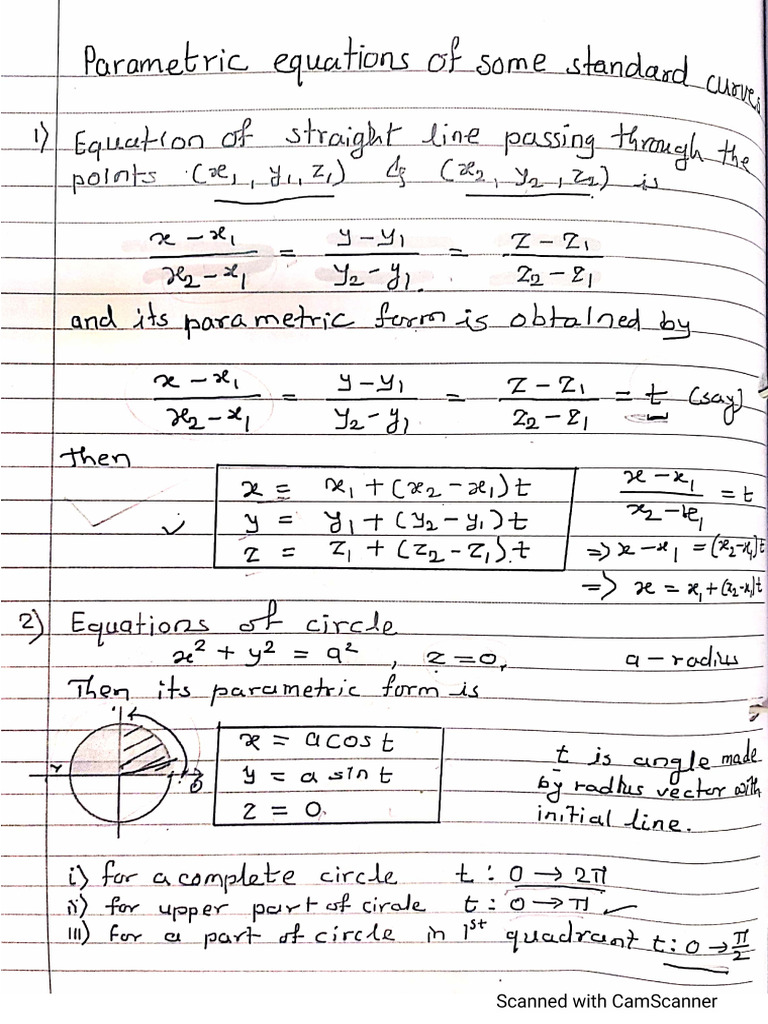 Parametric equations of some standard curves
1) Equation of straight line passing through the
points (x₁, y₁, z₁) & (x₂, y₂, z₂) is
(x − x₁)/(x₂ − x₁) = (y − y₁)/(y₂ − y₁) = (z − z₁)/(z₂ − z₁)
and its parametric form is obtained by
(x − x₁)/(x₂ − x₁) = (y − y₁)/(y₂ − y₁) = (z − z₁)/(z₂ − z₁) = t (say)
Then
x = x₁ + (x₂ − x₁)t
y = y₁ + (y₂ − y₁)t
z = z₁ + (z₂ − z₁).t
(x − x₁)/(x₂ − x₁) = t
⇒ x − x₁ = (x₂ − x₁)t
⇒ x = x₁ + (x₂ − x₁)t
2) Equations of circle
x² + y² = a² , z = 0, a − radius
Then its parametric form is
x = a cos t
y = a sin t
z = 0.
t is angle made
by radius vector with
initial line.
i) for a complete circle t : 0 → 2π
ii) for upper part of circle t : 0 → π ✓
iii) For a part of circle in 1st quadrant t : 0 → π/2
Scanned with CamScanner